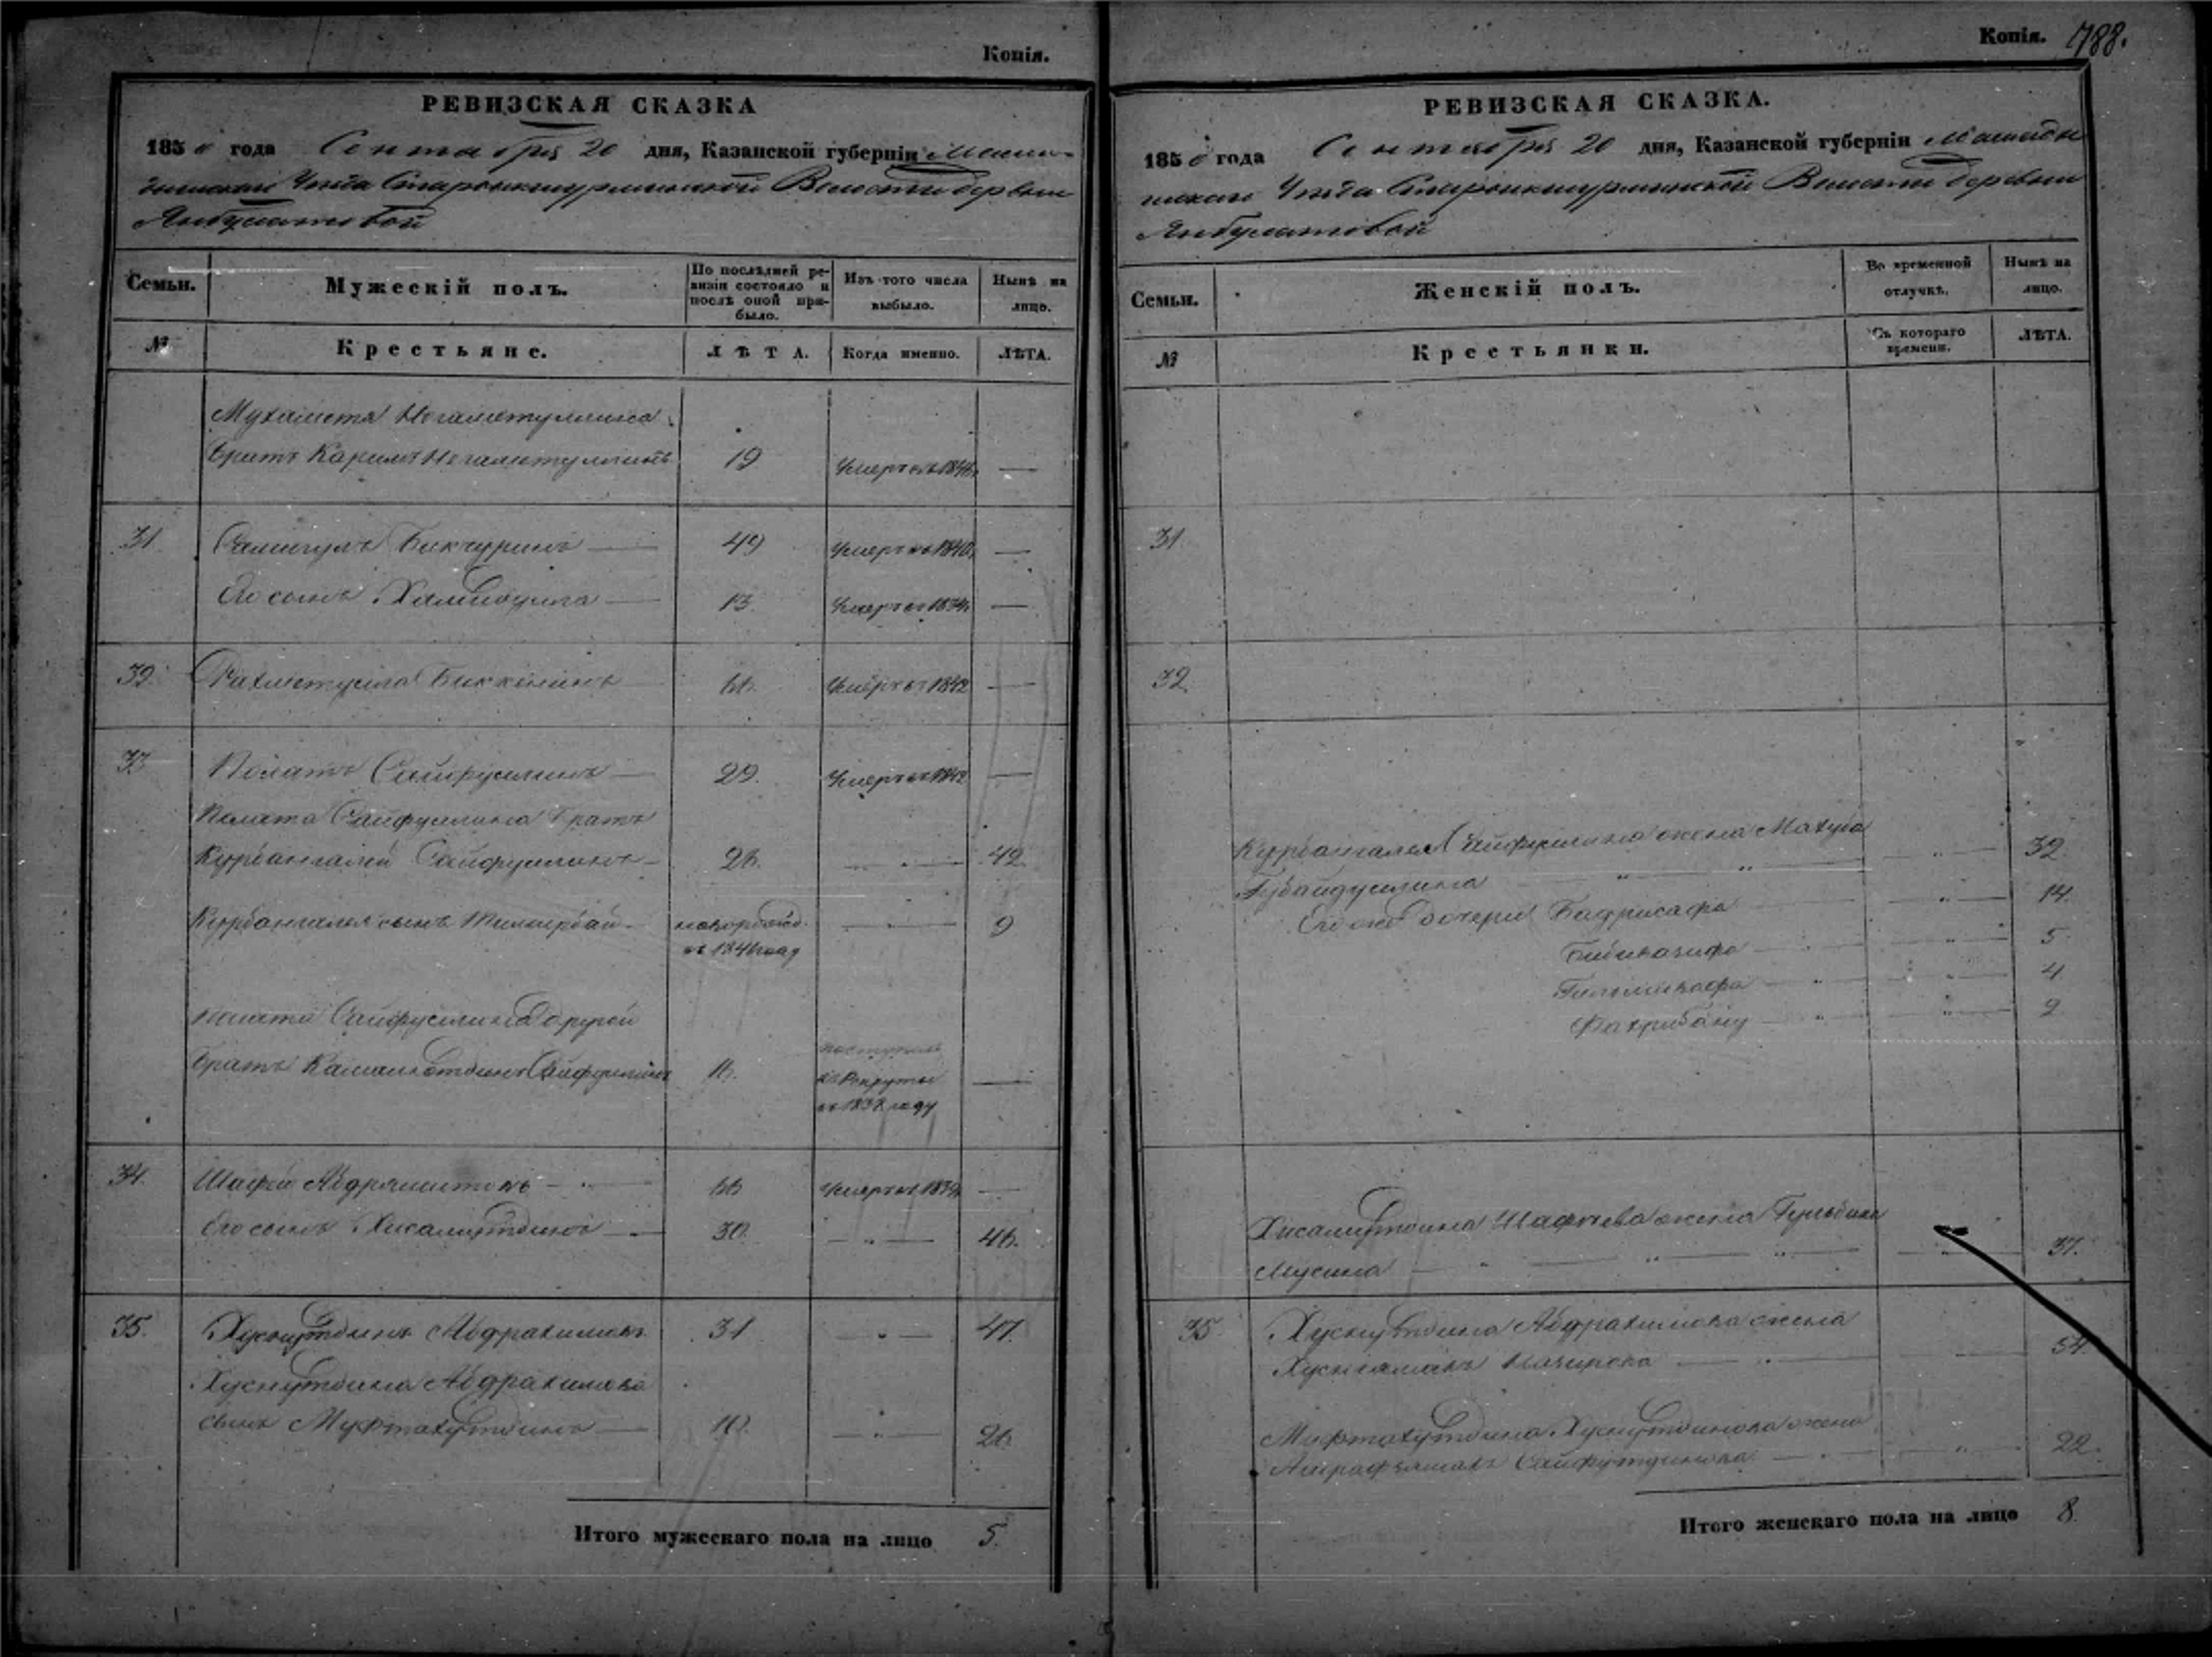 Копія.
РЕВИЗСКАЯ СКАЗКА
1850 года Сентября 20 дня, Казанской губерніи Мама-
дышскаго Уезда Старокишурминской Волости деревни
Янбулатовой
Семьи.
Мужескій полъ.
По послѣдней ре-
визіи состояло и
послѣ оной при-
было.
Изъ того числа
выбыло.
Нынѣ на
лицо.
№
Крестьяне.
ЛѢТА.
Когда именно.
ЛѢТА.
Мухаметя Негаметуллина
Братъ Каримъ Негаметуллинъ 19 Умеръ въ —
31. Бикчуринъ — 49 Умеръ въ 1840 —
Его сынъ — 13. Умеръ въ —
32. Рахметулла Биккининъ — 66. Умеръ въ 1842 —
33 Полатъ Сайфуллинъ — 29. Умеръ въ 1842 —
Полата Сайфуллина Братъ
Курбангалей Сайфуллинъ — 26. — „ — 42.
Курбангалея сынъ — новорожд. — „ — 9
въ году
Полата Сайфуллина Другой
Братъ Камалетдинъ Сайфуллинъ 16. поступилъ
въ Рекруты —
въ 1838 году
34. Шафей — „ — 66 Умеръ въ —
Его сынъ Хисамутдинъ — 30. — „ — 46.
35. Хуснутдинъ Абдрахимовъ 31 — „ — 47.
Хуснутдина Абдрахимова
сынъ Мифтахутдинъ — 10. — „ — 26.
Итого мужескаго пола на лицо 5.
Копія. 788.
РЕВИЗСКАЯ СКАЗКА.
1850 года Сентября 20 дня, Казанской губерніи Мамады
шскаго Уезда Старокишурминской Волости деревни
Янбулатовой
Семьи.
Женскій полъ.
Во временной
отлучкѣ.
Нынѣ на
лицо.
№
Крестьянки.
Съ котораго
времени.
ЛѢТА.
31
32.
Курбангалея Сайфуллина жена Махуба
Губайдуллина — „ — „ — „ — 32.
Его же Дочери Бадрисафа — „ — 14.
— „ — 5.
— „ — „ — 4
Фахрибану — „ — „ — 2
Хисамутдина Шафеева жена
Мусина — „ — „ — „ — 37.
35. Хуснутдина Абдрахимова жена
— „ — 54.
Мифтахутдина Хуснутдинова жена
Сайфутдинова — „ — „ — 22.
Итого женскаго пола на лицо 8.